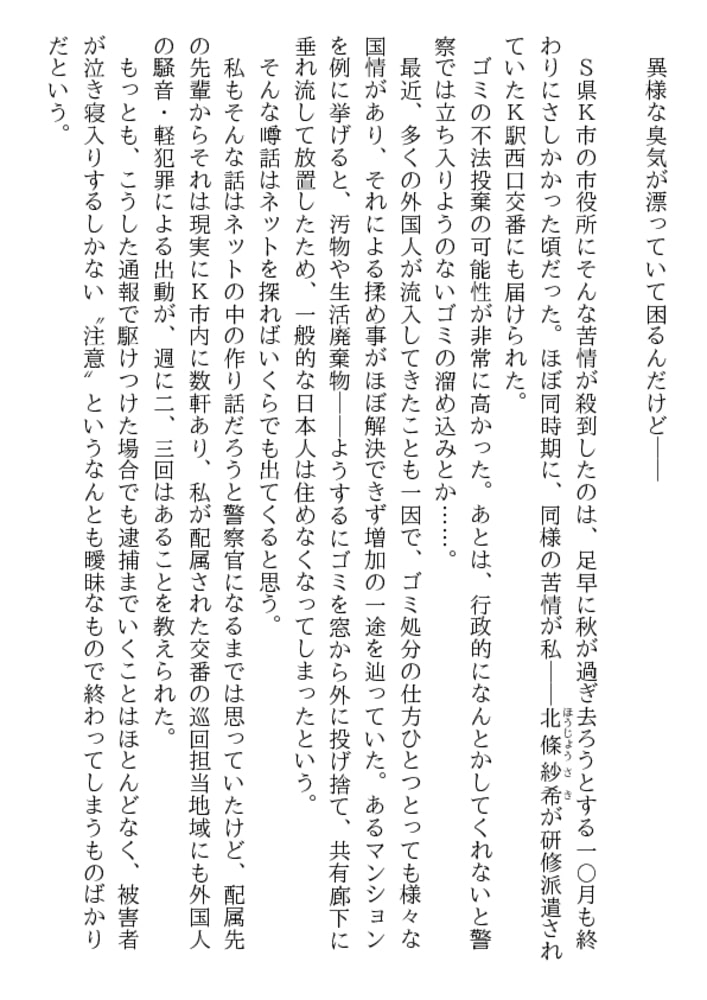 異様な臭気が漂っていて困るんだけど――
Ｓ県Ｋ市の市役所にそんな苦情が殺到したのは、足早に秋が過ぎ去ろうとする一〇月も終
わりにさしかかった頃だった。ほぼ同時期に、同様の苦情が私――北條紗希が研修派遣され
ほうじょうさき
ていたＫ駅西口交番にも届けられた。
ゴミの不法投棄の可能性が非常に高かった。あとは、行政的になんとかしてくれないと警
察では立ち入りようのないゴミの溜め込みとか……。
最近、多くの外国人が流入してきたことも一因で、ゴミ処分の仕方ひとつとっても様々な
国情があり、それによる揉め事がほぼ解決できず増加の一途を辿っていた。あるマンション
を例に挙げると、汚物や生活廃棄物――ようするにゴミを窓から外に投げ捨て、共有廊下に
垂れ流して放置したため、一般的な日本人は住めなくなってしまったという。
そんな噂話はネットを探ればいくらでも出てくると思う。
私もそんな話はネットの中の作り話だろうと警察官になるまでは思っていたけど、配属先
の先輩からそれは現実にＫ市内に数軒あり、私が配属された交番の巡回担当地域にも外国人
の騒音・軽犯罪による出動が、週に二、三回はあることを教えられた。
もっとも、こうした通報で駆けつけた場合でも逮捕までいくことはほとんどなく、被害者
が泣き寝入りするしかない〝注意〟というなんとも曖昧なもので終わってしまうものばかり
だという。